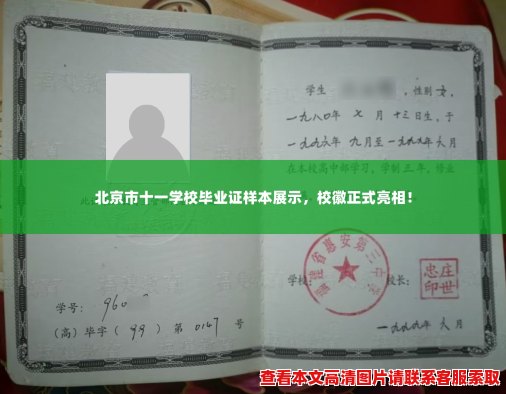 学生 ，性别 女，
一九八0年 七 月 十三日生，于
一九九六年 九月至一九九九年六月
在本校高中部学习，学制三年，修业
北京市十一学校毕业证样本展示，校徽正式亮相！
福建省惠安第三中学
学校 校长：
庄世忠印
学号： 960
（高）毕字（ 99 ）第 0147 号
一九九九年 六 月
查看本文高清图片请联系客服索取